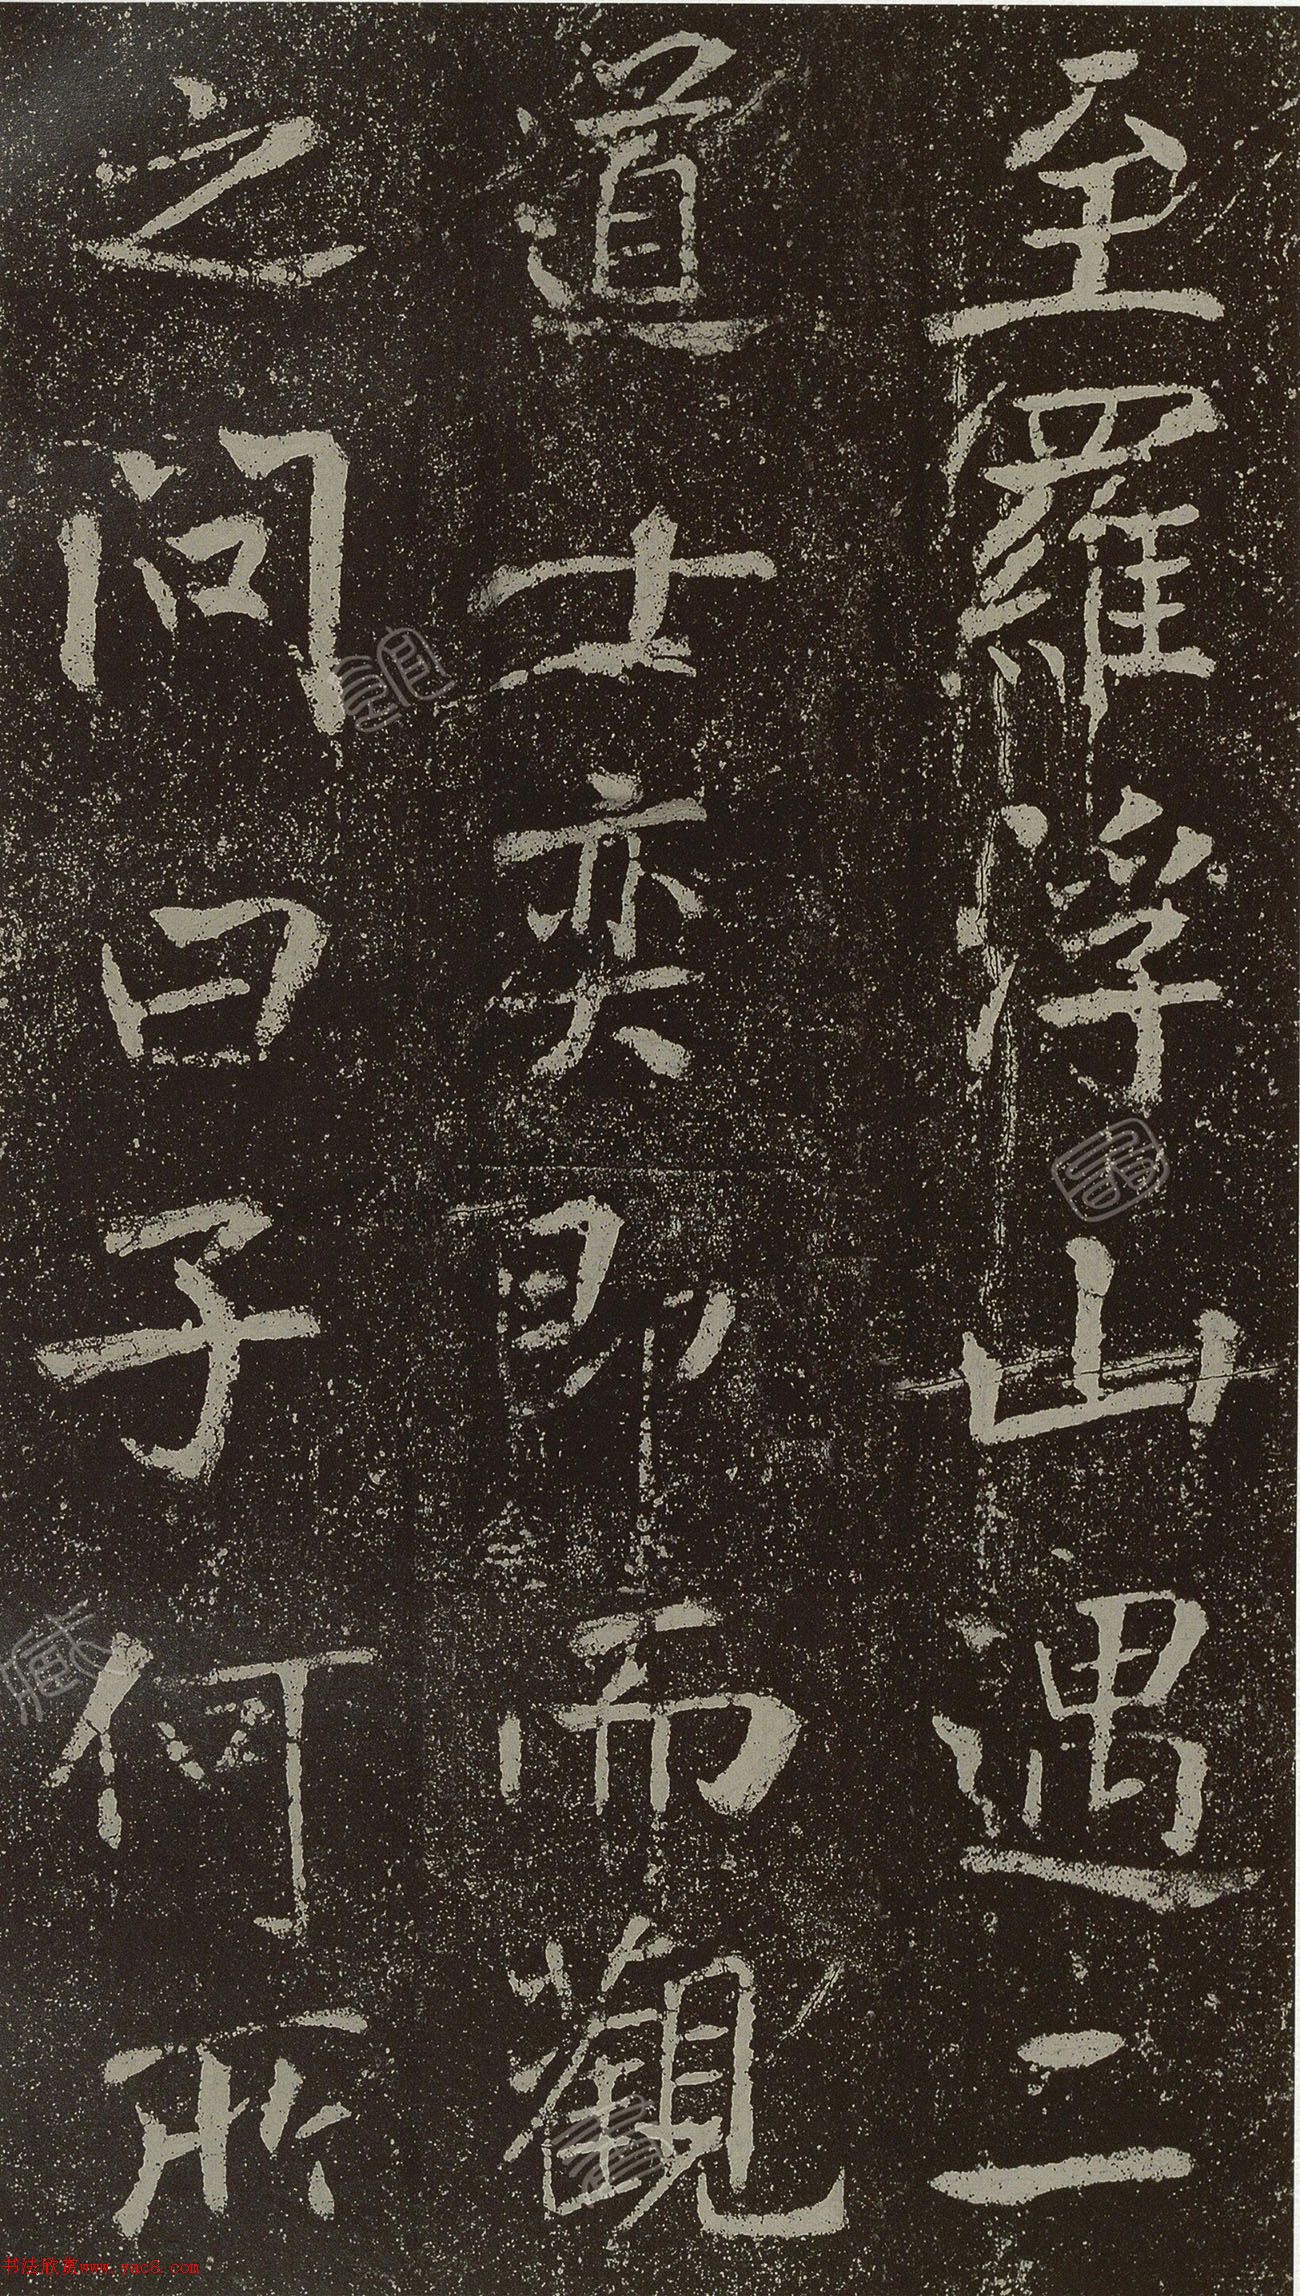 至羅浮山遇二
道士奕即而觀
之問曰子何所
书法欣赏www.yac8.com